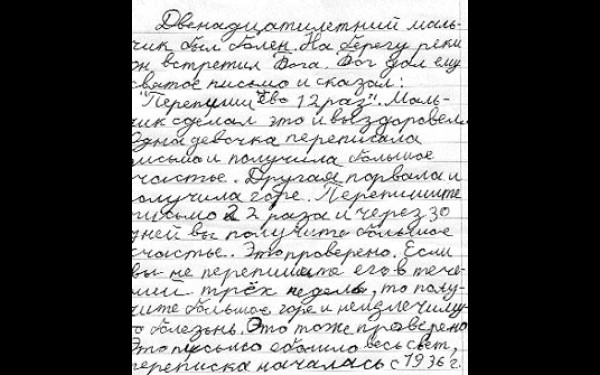 Двенадцатилетний маль-
чик был болен. На берегу реки
он встретил Бога. Бог дал ему
святое письмо и сказал:
"Перепиши ево 12 раз". Маль-
чик сделал это и выздоровел.
Одна девочка переписала
письмо и получила большое
счастье. Другая порвала и
получила горе. Перепишите
письмо 22 раза и через 30
дней вы получите большое
счастье. Это проверено. Если
вы не перепишите его в тече-
ний трёх недель, то полу-
чите большое горе и неизлечиму-
ю болезьнь. Это тоже проверено
Это письмо обошло весь свет,
переписка началась с 1936 г.